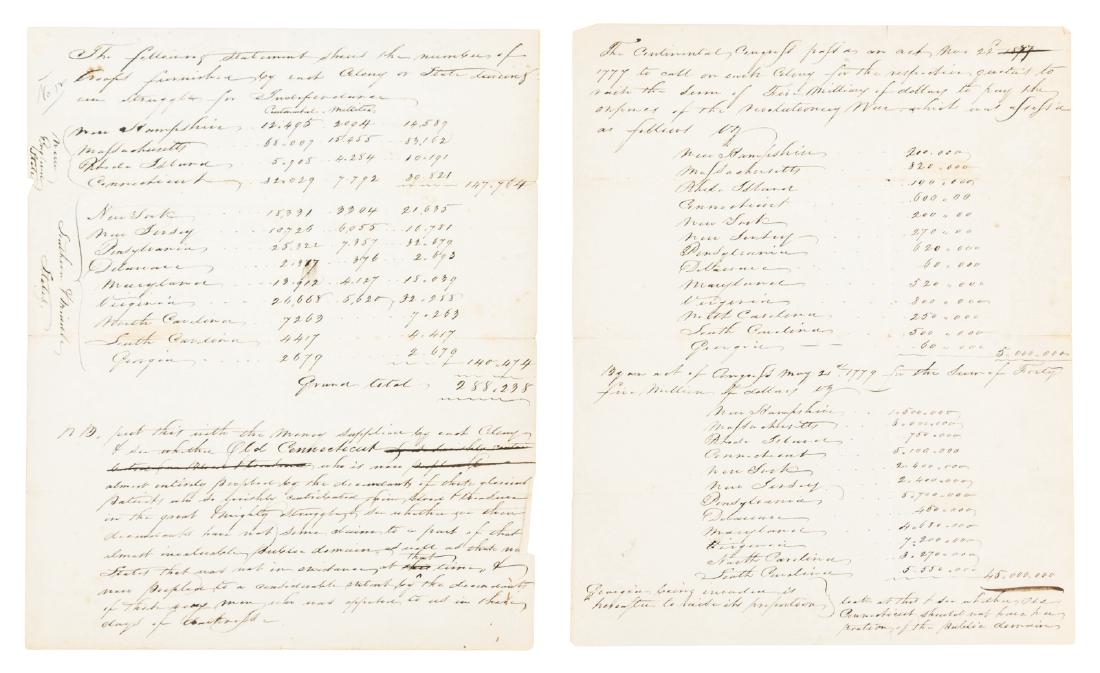 The following statement shews the number of
troops furnished by each Colony or State during
our struggle for Independance
Continental Militia
New Hampshire 12.495 2004 14.589
Massachusetts 68.007 15.455 83.162
Rhode Island 5.908 4.284 10.191
Connecticut 32.029 7.792 39.821
147.764
New York 18,331 3304 21,635
New Jersey 10726 6,055 16,781
Pensylvania 25,322 7.357 32.679
Delaware 2.317 376 2.693
Maryland 13.912 4.127 18.039
Virginia 26,668 5,620 32.288
North Carolina 7263 7.263
South Carolina 4417 4.417
Georgia 2679 2.679
140.474
Grand total 288.238
New
States
Southern & Middle
States
N B. put this with the Money supplied by each Colony
& see whether Old Connecticut
who is now
almost entirely peopled by the descendants of those glorious
patriots who so lavishly contributed their blood & treasure
in the great & mighty struggle & see whether
descendants have not some claim to a part of that
almost invaluable Public domain, as well as those new
States that was not in existance at that time, &
now peopled to a considerable extent by the descendants
of those very men who was opposed to us in those
days of darkness
The Continental Congress pass'd an act Nov 22d
1777 to call on each Colony for the respective quotas to
raise the Sum of Five Millions of dollars to pay the
expences of the revolutionary War which was assess'd
as follows viz
New Hampshire 200.000
Massachusetts 820.000
Rhode Island 100.000
Connecticut 600.00
New York 200.00
New Jersey 270.00
Pensylvania 620.000
Delaware 60.000
Maryland 520.000
Virginia 800.000
North Carolina 250.000
South Carolina 500.000
Georgia 60.000
5.000.000
By an act of Congress May 21st 1779 for the Sum of Forty
five Million of dollars viz
New Hampshire 1.500.000
Massachusetts 6.000.000
Rhode Island 750.000
Connecticut 5.100.000
New York 2.400.000
New Jersey 2.400.000
Pensylvania 5.700.000
Delaware 450.000
Maryland 4.680.000
Virginia 7.200.000
North Carolina 3.270.000
South Carolina 5.550.000
45.000.000
Georgia being invaded is
hereafter to raise its proportion
look at this & see whether Old
Connecticut should not have her
portion of the public domain